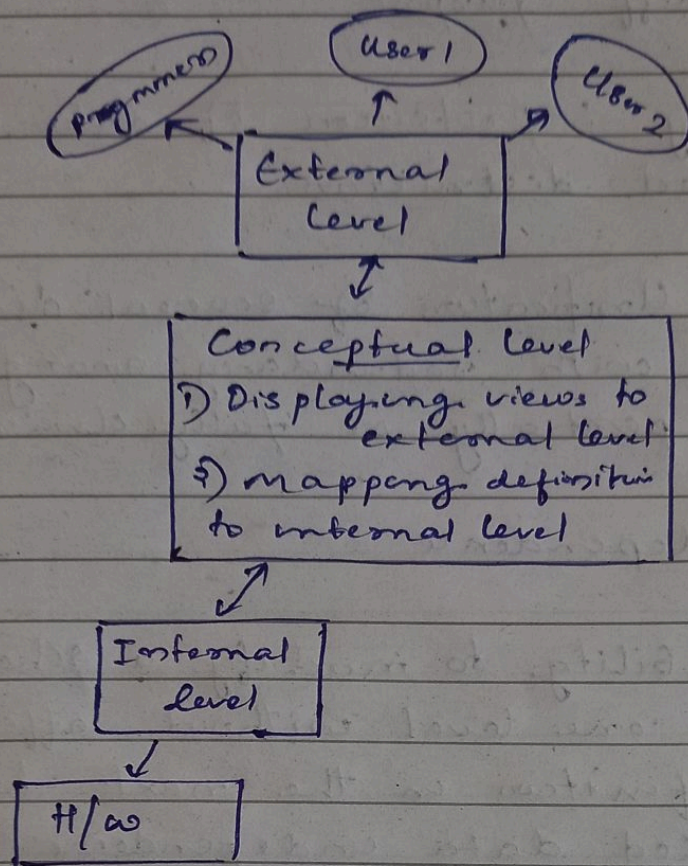 Progmmers
User 1
User 2
External
level
Conceptual level
1) Displaying views to
external level
2) Mapping definition
to internal level
Internal
level
H/w